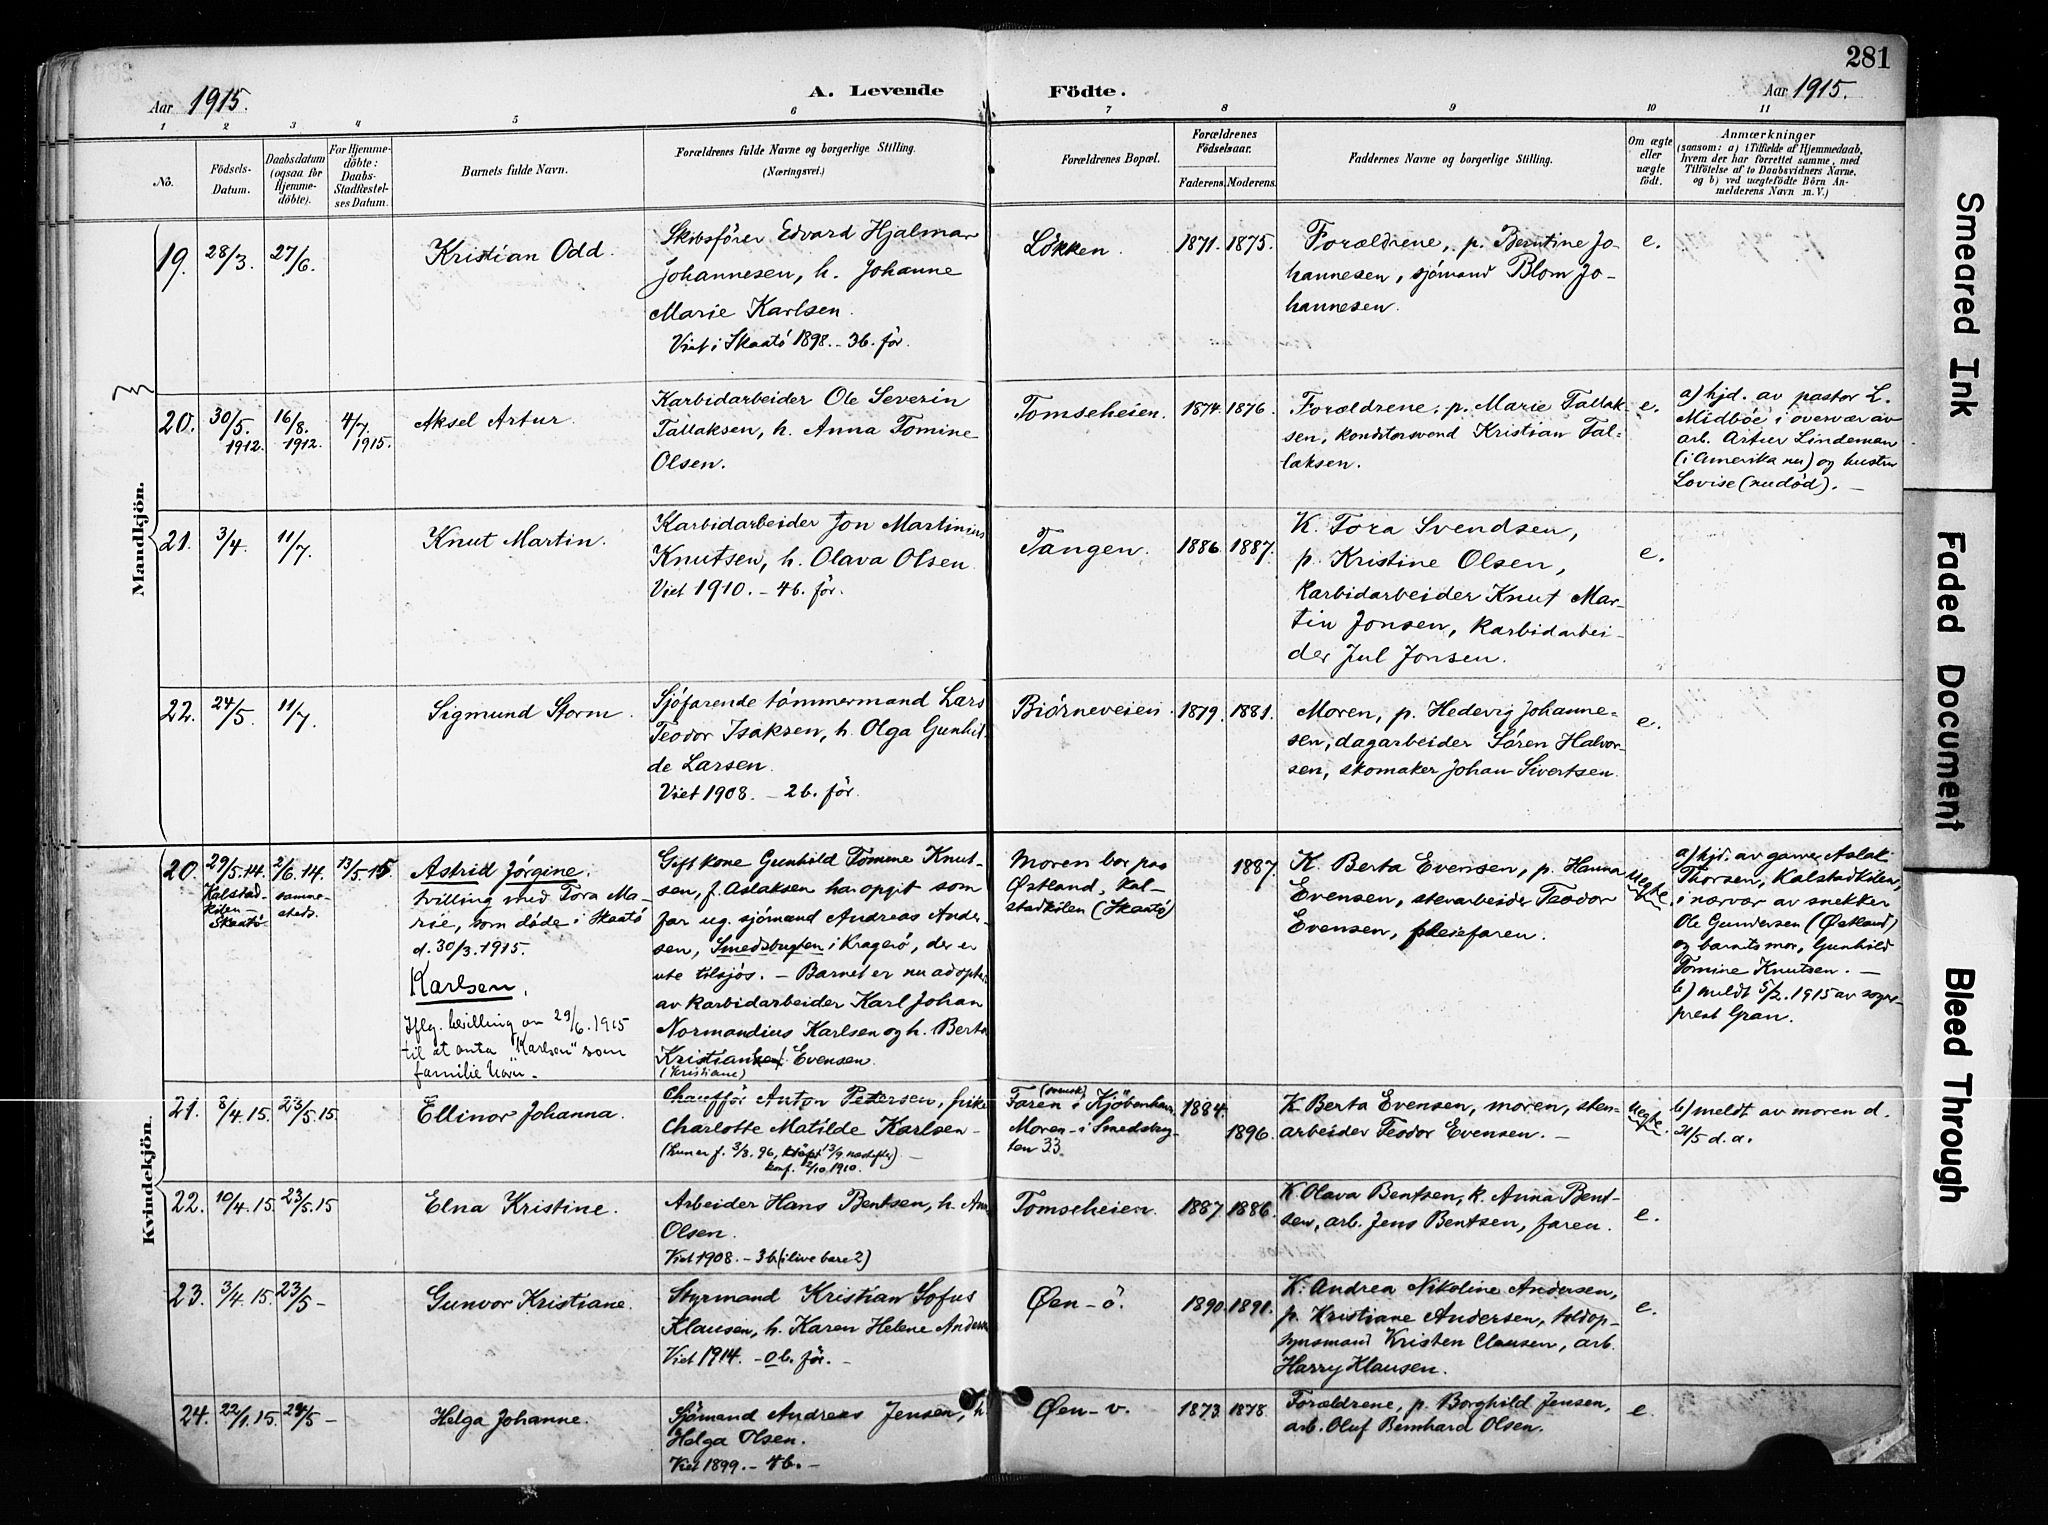 281
Aar 1915. A. Levende Födte. Aar 1915.
1 2 3 4 5 6 7 8 9 10 11
No.
Födsels-
Datum.
Daabsdatum
(ogsaa for
Hjemme-
döbte).
For Hjemme-
döbte:
Daabs-
Stadfæstel-
ses Datum.
Barnets fulde Navn.
Forældrenes fulde Navne og borgerlige Stilling.
(Næringsvei.)
Forældrenes Bopæl.
Forældrenes
Födselsaar.
Faderens. Moderens.
Faddernes Navne og borgerlige Stilling.
Om ægte
eller
uægte
födt.
Anmærkninger
(saasom: a) i Tilfælde af Hjemmedaab,
hvem der har forrettet samme, med
Tilföielse af to Daabsvidners Navne,
og b) ved uægtefödte Börn An-
melderens Navn m. V.)
Mandkjön.
19. 28/3. 27/6.
Kristian Odd.
Skibsfører Edvard Hjalmar
Johannesen, h. Johanne
Marie Karlsen.
Viet i Skaatö 1898. - 3b. för.
Løkken. 1871. 1875.
Forældrene, p. Berntine Jo-
hannesen, sjömand Blom Jo-
hannesen.
e.
20. 30/5. 1912. 16/8. 1912. 4/7. 1915.
Aksel Artur.
Karbidarbeider Ole Severin
Tallaksen, h. Anna Tomine
Olsen.
Tomseheien. 1874. 1876.
Forældrene, p. Marie Tallak-
sen, konditorsvend Kristian Tal-
laksen.
e.
a) hjd. av pastor L.
Midböe i overvær av
arb. Artur Lindeman
(i Amerika nu) og hustru
Lovise (nu död). -
21. 3/4. 11/7.
Knut Martin.
Karbidarbeider Jon Martinius
Knutsen, h. Olava Olsen
Viet 1910. - 4b. för.
Tangen. 1886. 1887.
K. Tora Svendsen,
p. Kristine Olsen,
Karbidarbeider Knut Mar-
tin Jonsen, karbidarbei-
der Jul Jonsen.
e.
22. 24/5. 11/7.
Sigmund Storm.
Sjöfarende tömmermand Lars
Teodor Isaksen, h. Olga Gunhil-
de Larsen.
Viet 1908. - 2b. för.
Biørneveien. 1879. 1881.
Moren, p. Hedevig Johanne-
sen, dagarbeider Sören Halvor-
sen, skomaker Johan Sivertsen.
e.
Kvindekjön.
20. 29/5.14. 2/6.14 13/5.15
Kalstad-
kilen-
Skaatö
samme-
steds.
Astrid Jörgine.
tvilling med Tora Ma-
rie, som döde i Skaatö
d. 30/3. 1915.
Karlsen.
Iflg. bevilling av 29/6.1915
til at anta "Karlsen" som
familie navn.
Gift kone Gunhild Tomine Knut-
sen, f. Aslaksen har opgit som
far ug. sjömand Andreas Ander-
sen, Smedsbugten i Kragerö, der er
ute tilsjös. - Barnet er nu adopt.
av karbidarbeider Karl Johan
Normandius Karlsen og h. Berta
Kristian Evensen.
(Kristiane)
Moren bor paa
Østland, Kal-
stadkilen (Skaatö)
1887.
K. Berta Evensen, p. Hanna
Evensen, stenarbeider Teodor
Evensen, pleiefaren.
Uegte.
a) hjd. av gamer Aslak
Thorsen, Kalstadkilen,
i nærvær av snekker
Ole Gundersen (Østland)
og barnets mor, Gunhild
Tomine Knutsen. -
b) meldt 5/2. 1915 av sogne-
prest Gran.
21. 8/4.15. 23/5.15
Ellinor Johanna.
Chauffør Anton Pedersen, pike
Charlotte Matilde Karlsen -
(hun er f. 3/3. 96,
konf. 2/10. 1910.
(svensk)
Faren i Kjöbenhavn.
Moren - i Smedsbug-
ten 33.
1884. 1896.
K. Berta Evensen, moren, sten-
arbeider Teodor Evensen. -
Uegte.
b) meldt av moren d.
21/5 d. a.
22. 10/4.15. 23/5.15
Elna Kristine.
Arbeider Hans Bentsen, h. Anna
Olsen.
Viet 1908. - 3b (ilive bare 2)
Tomseheien. 1887. 1886.
K. Olava Bentsen, k. Anna Bent-
sen, arb. Jens Bentsen, faren.
e.
23. 3/4.15. 23/5 -
Gunvor Kristiane.
Styrmand Kristian Sofus
Klausen, h. Karen Helene Andersen
Viet 1914. - 0b. för. -
Øen - ö. 1890. 1891.
K. Andrea Nikoline Andersen,
p. Kristiane Andersen, toldop-
synsmand Kristen Clausen, arb.
Harry Klausen.
e.
24. 22/1.15. 24/5 -
Helga Johanne.
Sjömand Andreas Jensen, h.
Helga Olsen.
Viet 1899. - 4b. -
Øen - v. 1873. 1878.
Forældrene, p. Borghild Jensen,
arb. Oluf Bernhard Olsen.
e.
Smeared Ink
Faded Document
Bleed Through